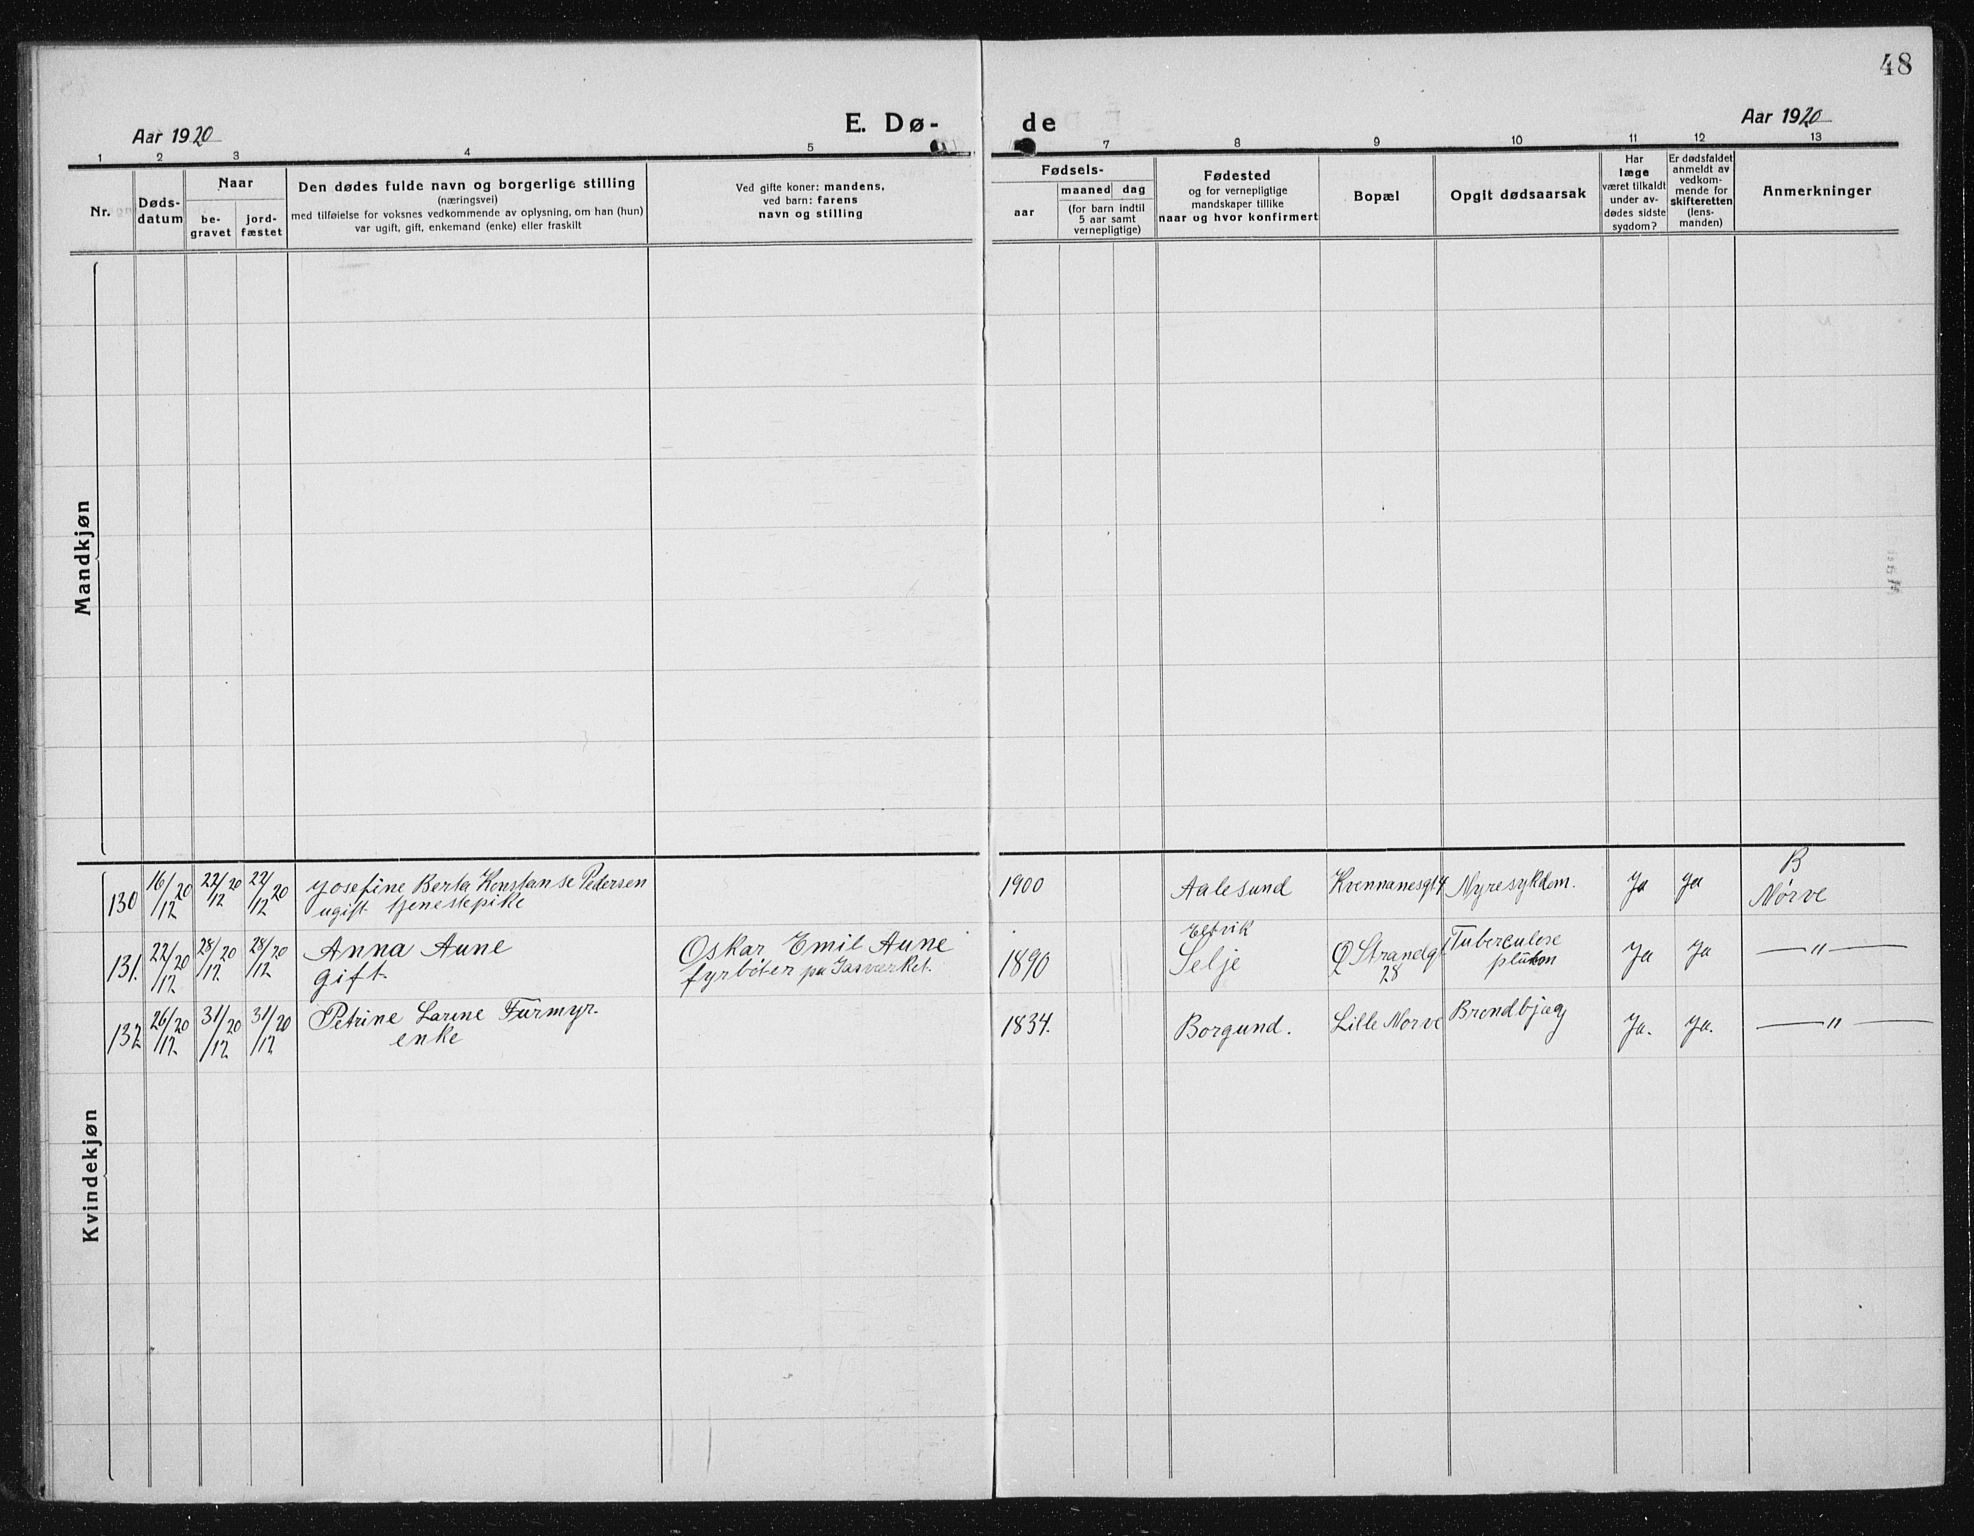 48
Aar 1920
E. Dø-
de
Aar 1920
1 2 3 4 5 7 8 9 10 11 12 13
Nr.
Døds-
datum
Naar
be-
gravet
jord-
fæstet
Den dødes fulde navn og borgerlige stilling
(næringsvei)
med tilføielse for voksnes vedkommende av oplysning, om han (hun)
var ugift, gift, enkemand (enke) eller fraskilt
Ved gifte koner: mandens,
ved barn: farens
navn og stilling
Fødsels-
aar
maaned dag
(for barn indtil
5 aar samt
vernepligtige)
Fødested
og for vernepligtige
mandskaper tillike
naar og hvor konfirmert
Bopæl
Opgit dødsaarsak
Har
læge
været tilkaldt
under av-
dødes sidste
sygdom?
Er dødsfaldet
anmeldt av
vedkom-
mende for
skifteretten
(lens-
manden)
Anmerkninger
Mandkjøn
Kvindekjøn
130 16/12 20 22/12 20 22/12 20 Josefine Berta Konstanse Pedersen
ugift tjenestepike
1900 Aalesund Kvennanesgt 4 Nyresykdom. Ja Ja B
Nørve
131. 22/12 20 28/12 20 28/12 20 Anna Aune
gift.
Oskar Emil Aune
fyrbøter på Gasværket.
1890 Selje Ø Strandgt
28
Tuberculose
Ja Ja —"—
132 26/12 20 31/12 20 31/12 20 Petrine Larine Furmyr.
enke
1834. Borgund. Lille Nørve Ja. Ja. —"—